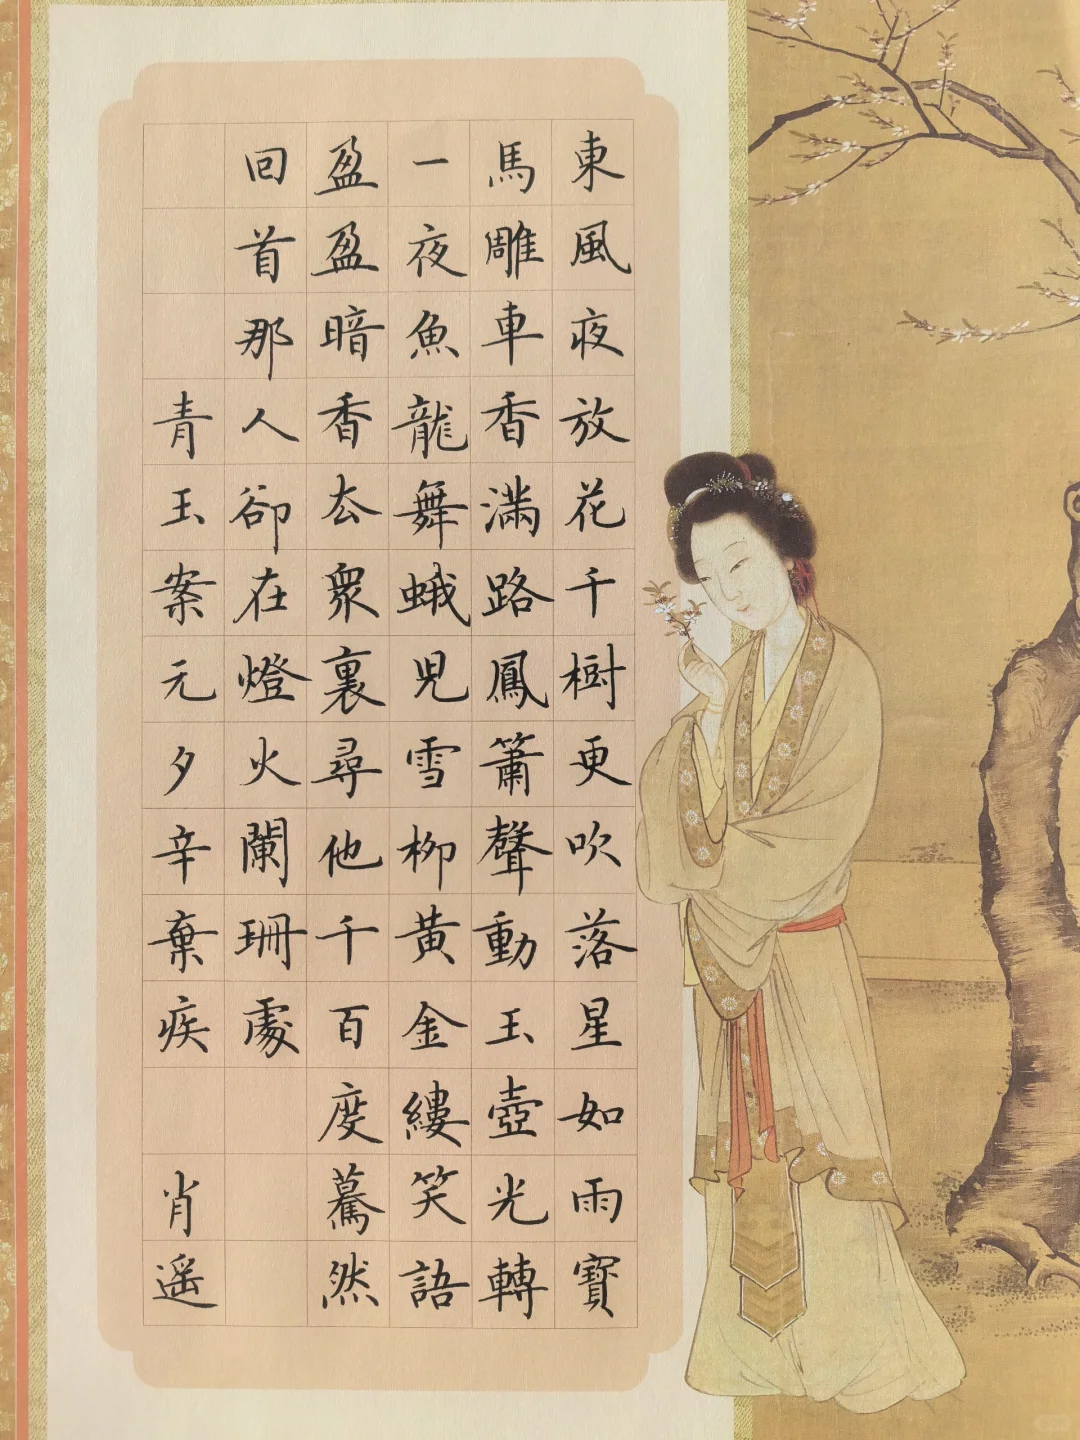 東風夜放花千樹更吹落星如雨寶
馬雕車香滿路鳳簫聲動玉壺光轉
一夜魚龍舞蛾児雪柳黃金縷笑語
盈盈暗香厺眾裏尋他千百度驀然
回首那人卻在燈火闌珊處
青玉案元夕辛棄疾 肖遥